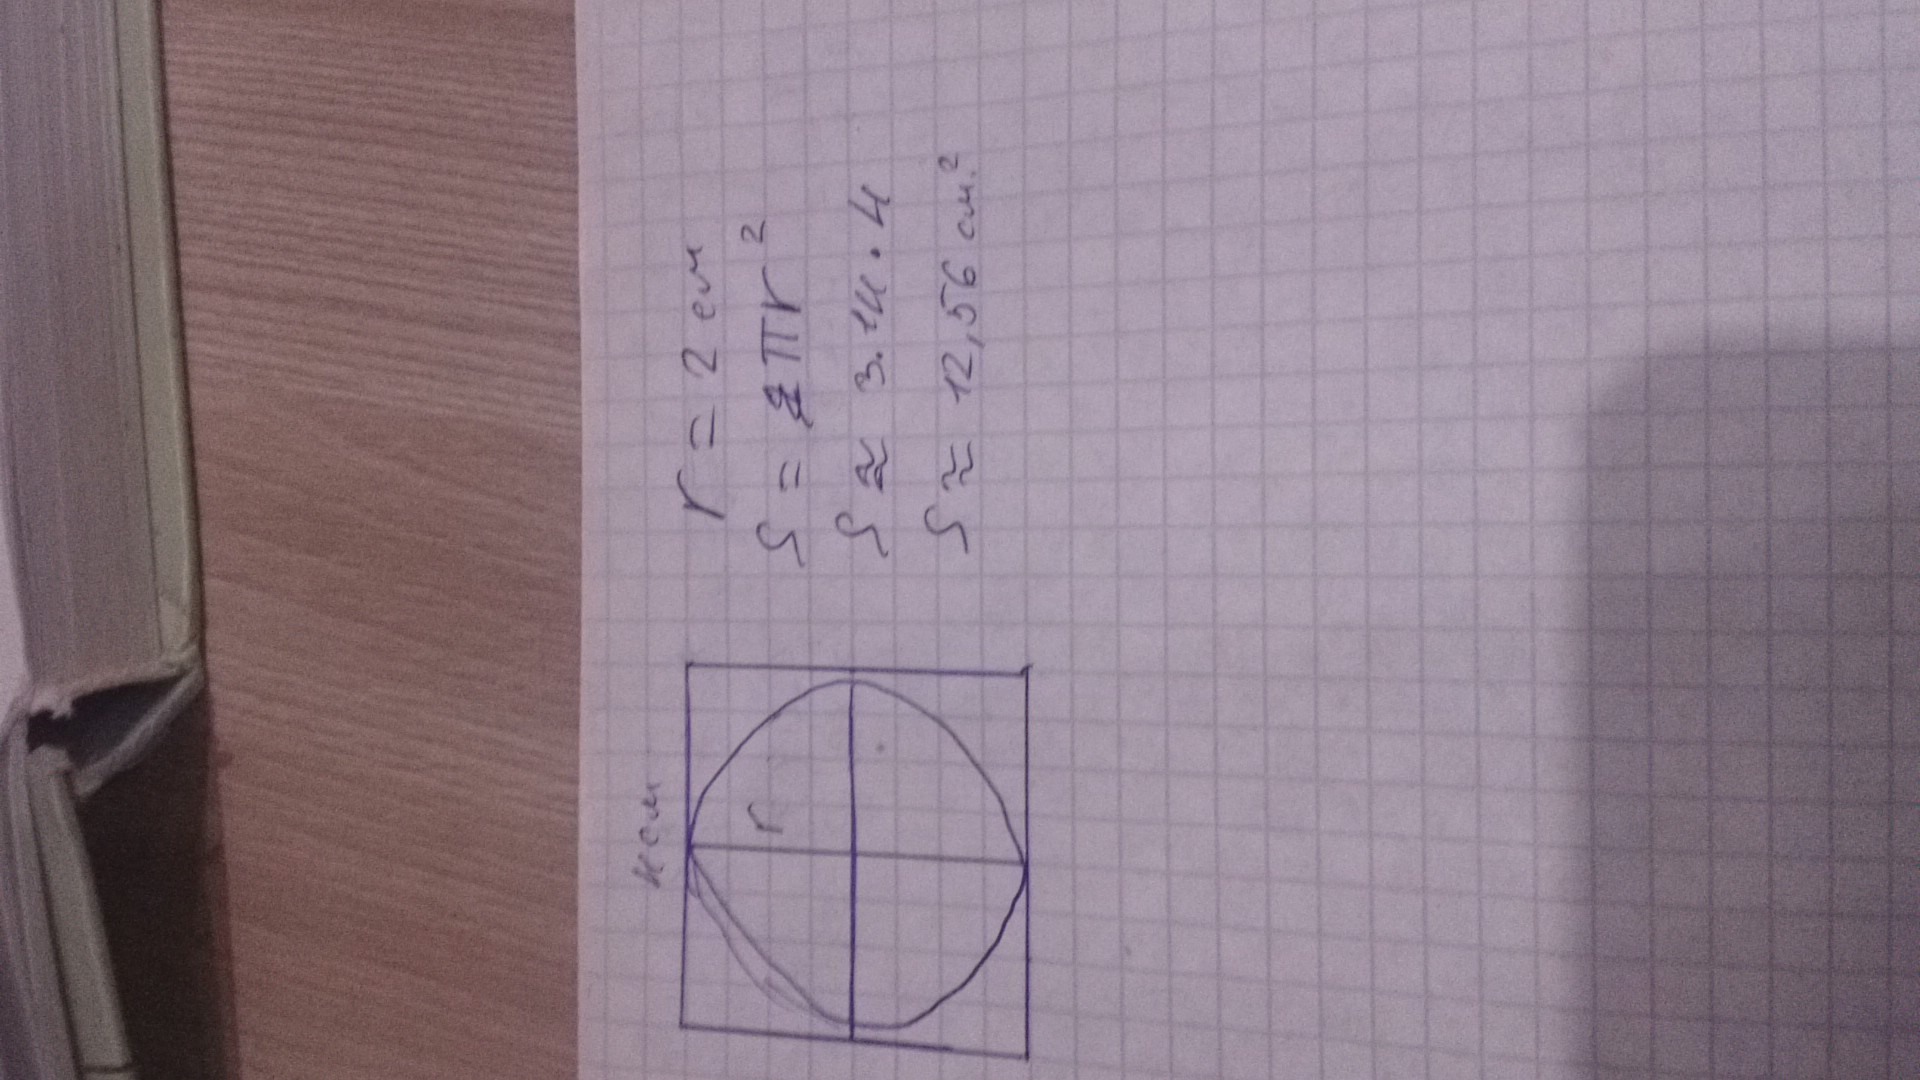 4 см
r
r = 2 см
S = πr²
S ≈ 3.14 · 4
S ≈ 12,56 см.²